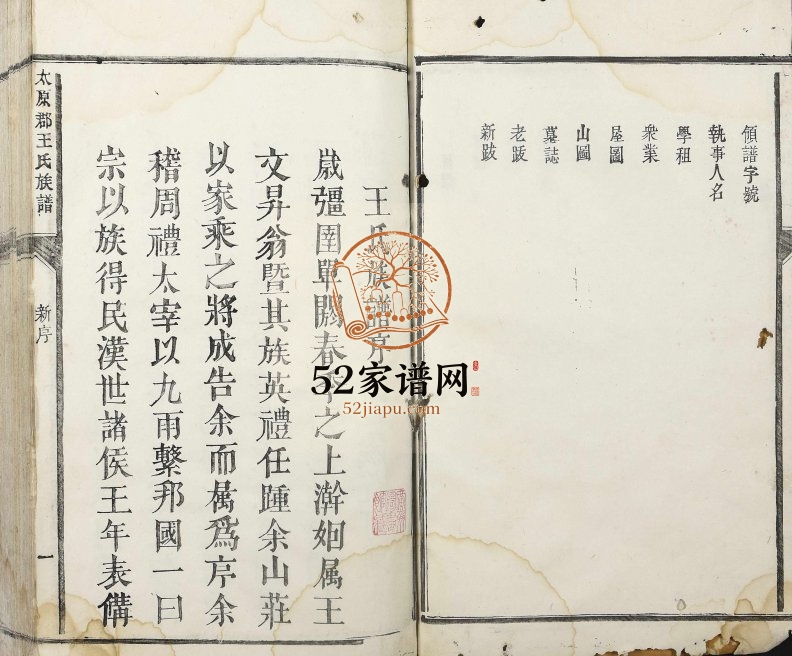 領譜字號
執事人名
學租
衆業
屋圖
山圖
墓誌
老跋
新跋
王氏族譜序
歲彊圉單閼春季之上澣姻属王
文昇翁暨其族英禮任踵余山莊
以家乘之將成告余而属爲序余
稽周禮太宰以九兩繫邦國一曰
宗以族得民漢世諸侯王年表備
太原郡王氏族譜
新序
一
52家谱网
52jiapu.com